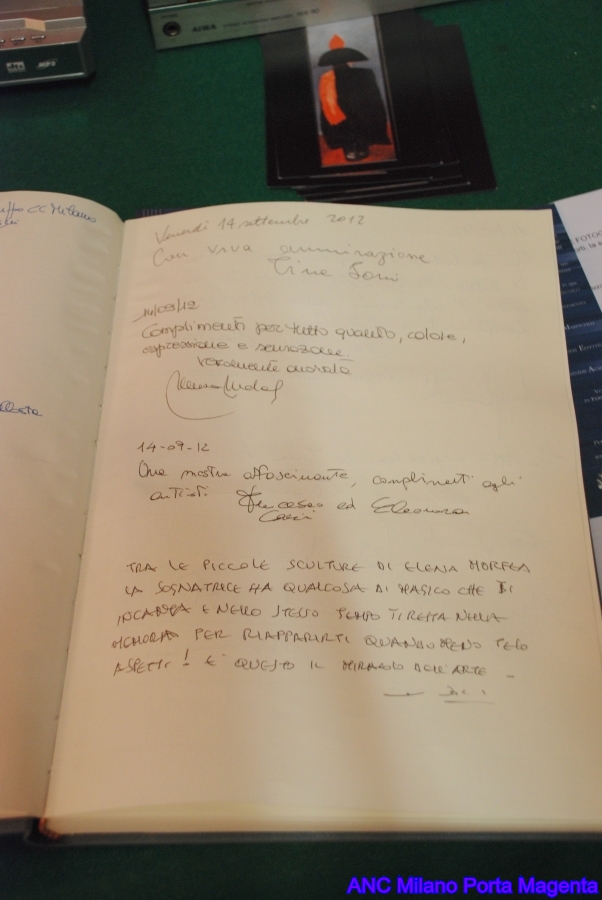 AIWA
MP3
CC Milano
Venerdì 14 settembre 2012
Con viva ammirazione
14/09/12
Complimenti per tutto quanto, colore,
espressione e sensazione.
Veramente
14-09-12
Una mostra affascinante, complimenti agli
artisti. Francesco ed Eleonora
TRA LE PICCOLE SCULTURE DI ELENA MORFEA
LA SOGNATRICE HA QUALCOSA DI MAGICO CHE TI
INCANTA E NELLO STESSO TEMPO TI RESTA NELLA
MEMORIA PER RIAPPARIRTI QUANDO MENO TE LO
ASPETTI! E' QUESTO IL MIRACOLO DELL'ARTE -
FOTOG
ANC Milano Porta Magenta